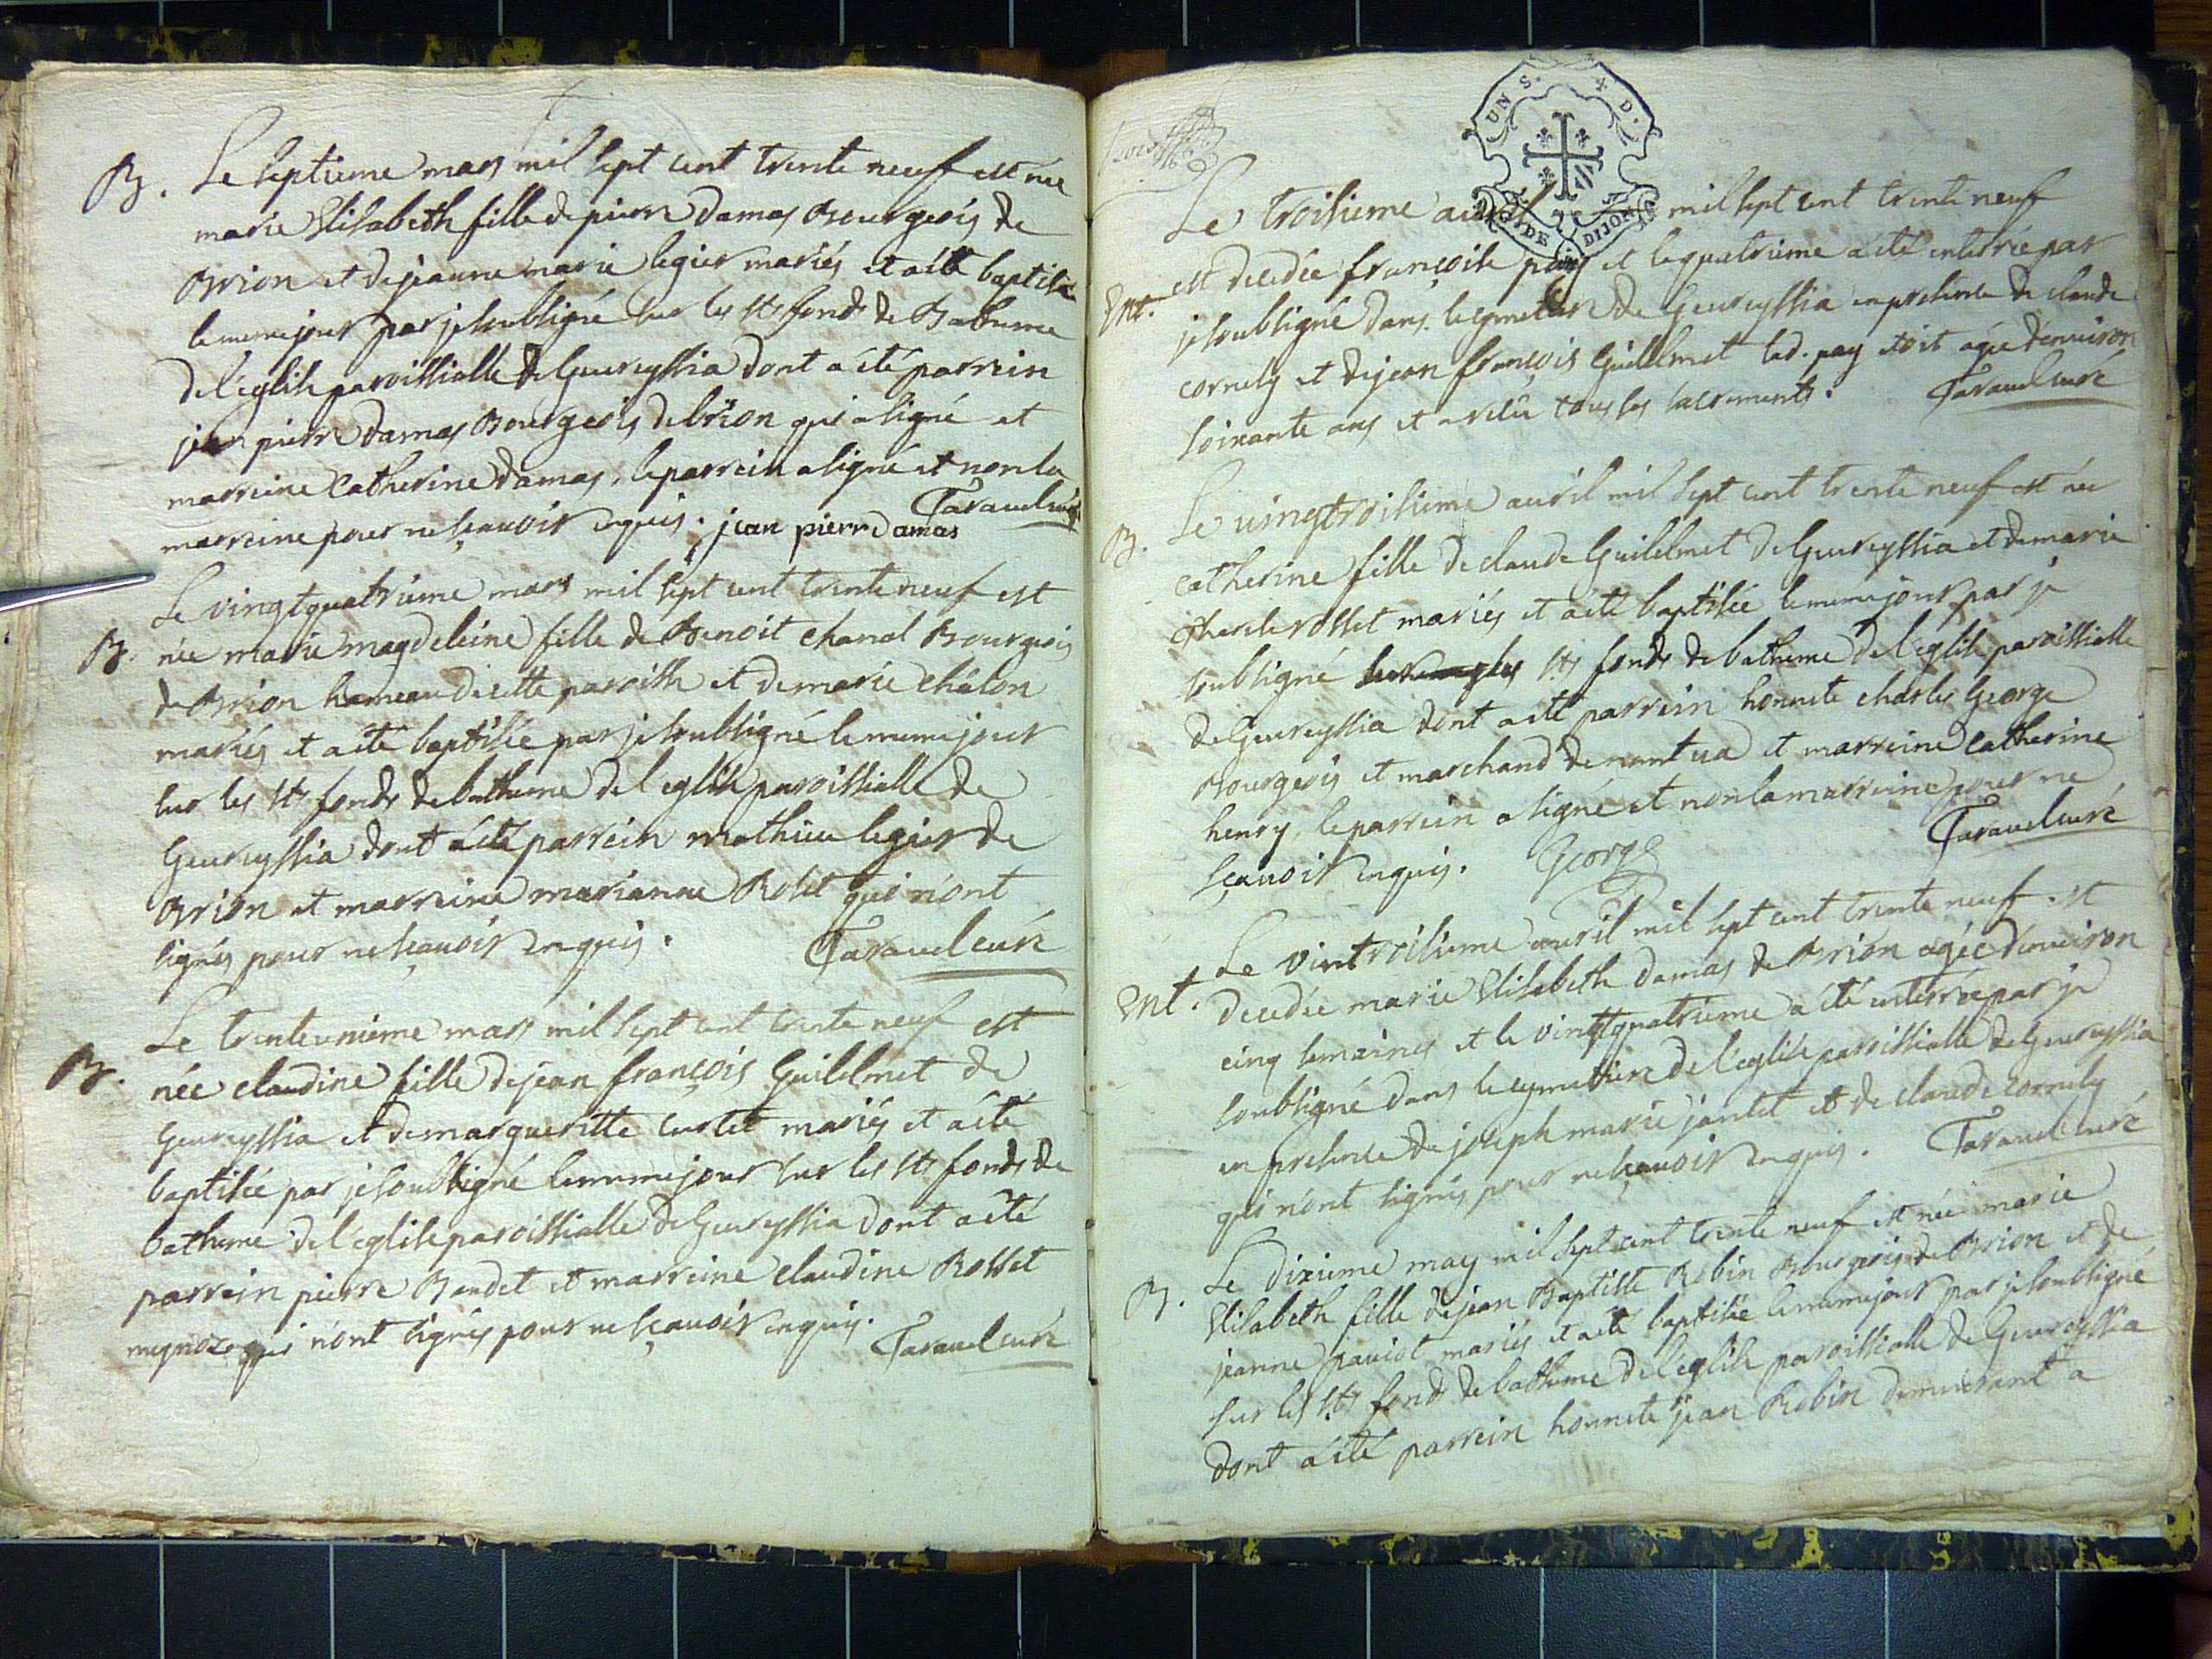 B. Le septieme mars mil sept cent trente neuf est née
marie Elisabeth fille de pierre Damas Bourgeois de
Brion et de jeanne marie legier mariés et a été baptisée
le meme jour par je soubsigné sur les sts fonds de Batheme
de l'eglise paroissialle de Geureyssia dont a été parrein
jean pierre Damas Bourgeois de brion qui a signé et
marreine Catherine Damas, le parrein a signé et non la
marreine pour ne sçauoir enquis. jean pierre Damas
Tarauel curé
Le vingtquatrieme mars mil sept cent trente neuf est
B. née marie magdeleine fille de Benoit chanal Bourgeois
de Brion hameau de cette paroisse et de marie châlon
mariés et a été baptisée par je soubsigné le meme jour
sur les sts fonds de batheme de l eglise paroissialle de
Geureyssia dont a été parrein mathieu legier de
Brion et marreine marianne Rolet qui n'ont
signés pour ne sçauoir enquis. Tarauel curé
Le trente unieme mars mil sept cent trente neuf est
B. née claudine fille de jean françois Guilelmet de
Geureyssia et de margueritte Curtet mariés et a été
baptisée par je soubsigné le meme jour sur les sts fonds de
batheme de l'eglise paroissialle de Geureyssia dont a été
parrein pierre Baudet et marreine claudine Rosset
qui n'ont signés pour ne sçauoir enquis. Tarauel curé
UN S. 4 D.
DE DIJON
Le troisieme auril mil sept cent trente neuf
Ent. est decedée françoise pay et le quatrieme a été enterrée par
je soubsigné dans le cymetiere de Geureyssia en presence de claude
cornely et de jean françois Guilelmet lad. pay etoit agée d'enuiron
soixante ans et a reçû tous les sacrements. Tarauel curé
Le uingtroisieme auril mil sept cent trente neuf est née
B. catherine fille de claude Guilelmet de Geureyssia et de marie
rosset mariés et a été baptisée le meme jour par je
soubsigné sts fonds de batheme de l'eglise paroissialle
de Geureyssia dont a été parrein honnete charles George
Bourgeois et marchand de nantua et marreine Catherine
henry, le parrein a signé et non la marreine pour ne
sçauoir enquis. George Tarauel curé
Le vintroisieme auril mil sept cent trente neuf est
Ent. decedée marie Elisabeth Damas de Brion agée d'enuiron
cinq semaines et le vingtquatrieme a été enterrée par je
soubsigné dans le cymetiere de l'eglise paroissialle de Geureyssia
en presence de joseph marie jantet et de claude cornely
qui n'ont signés pour ne sçauoir enquis. Tarauel curé
Le dixieme may mil sept cent trente neuf est née marie
B. Elisabeth fille de jean Baptiste Robin Bourgeois de Brion et de
jeanne pauiot mariés et a été baptisée le meme jour par je soubsigné
sur les sts fonds de batheme de l'eglise paroissialle de Geureyssia
dont a été parrein honnete jean Robin demeurant a